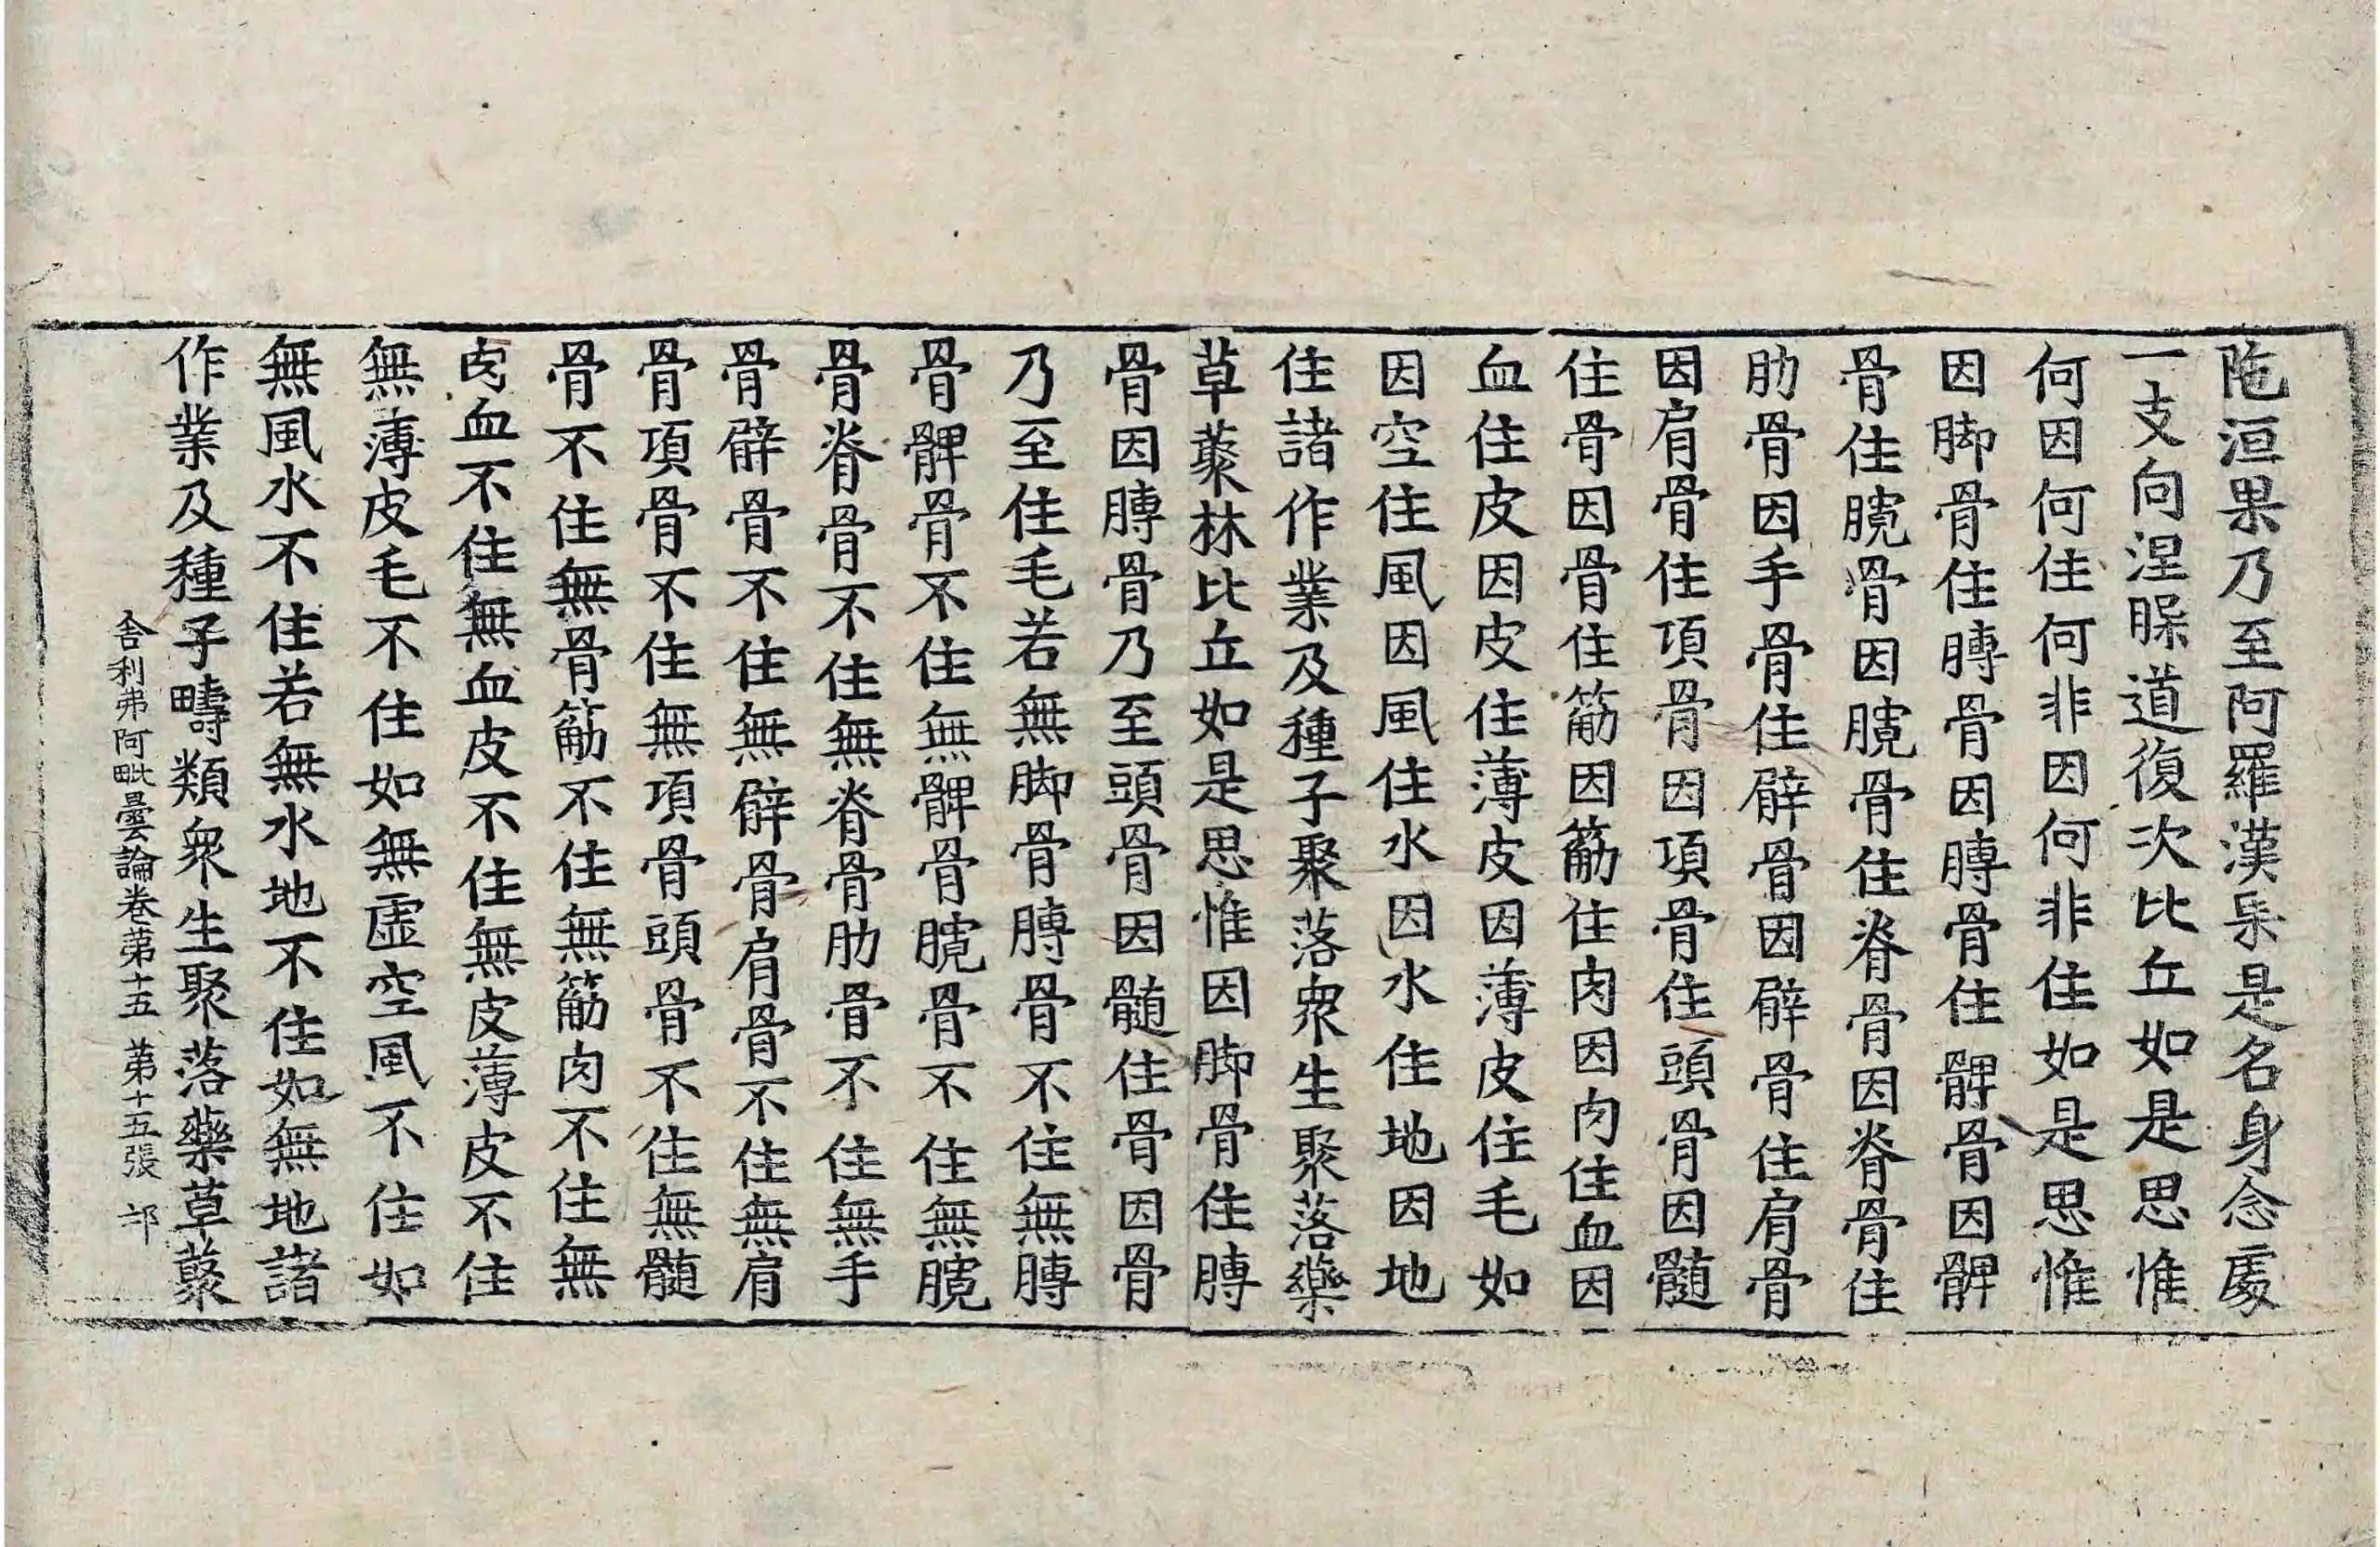 陁洹果乃至阿羅漢果是名身念處
一支向涅槃道復次比丘如是思惟
何因何住何非因何非住如是思惟
因脚骨住膞骨因膞骨住髀骨因髀
骨住臗骨因臗骨住脊骨因脊骨住
肋骨因手骨住臂骨因臂骨住肩骨
因肩骨住項骨因項骨住頭骨因髓
住骨因骨住筋因筋住肉因肉住血因
血住皮因皮住薄皮因薄皮住毛如
因空住風因風住水因水住地因地
住諸作業及種子聚落衆生聚落藥
草藂林比丘如是思惟因脚骨住膞
骨因膞骨乃至頭骨因髓住骨因骨
乃至住毛若無脚骨膞骨不住無膞
骨髀骨不住無髀骨臗骨不住無臗
骨脊骨不住無脊骨肋骨不住無手
骨臂骨不住無臂骨肩骨不住無肩
骨項骨不住無項骨頭骨不住無髓
骨不住無骨筋不住無筋肉不住無
肉血不住無血皮不住無皮薄皮不住
無薄皮毛不住如無虛空風不住如
無風水不住若無水地不住如無地諸
作業及種子疇類衆生聚落藥草藂
舍利弗阿毗曇論卷苐十五 苐十五張